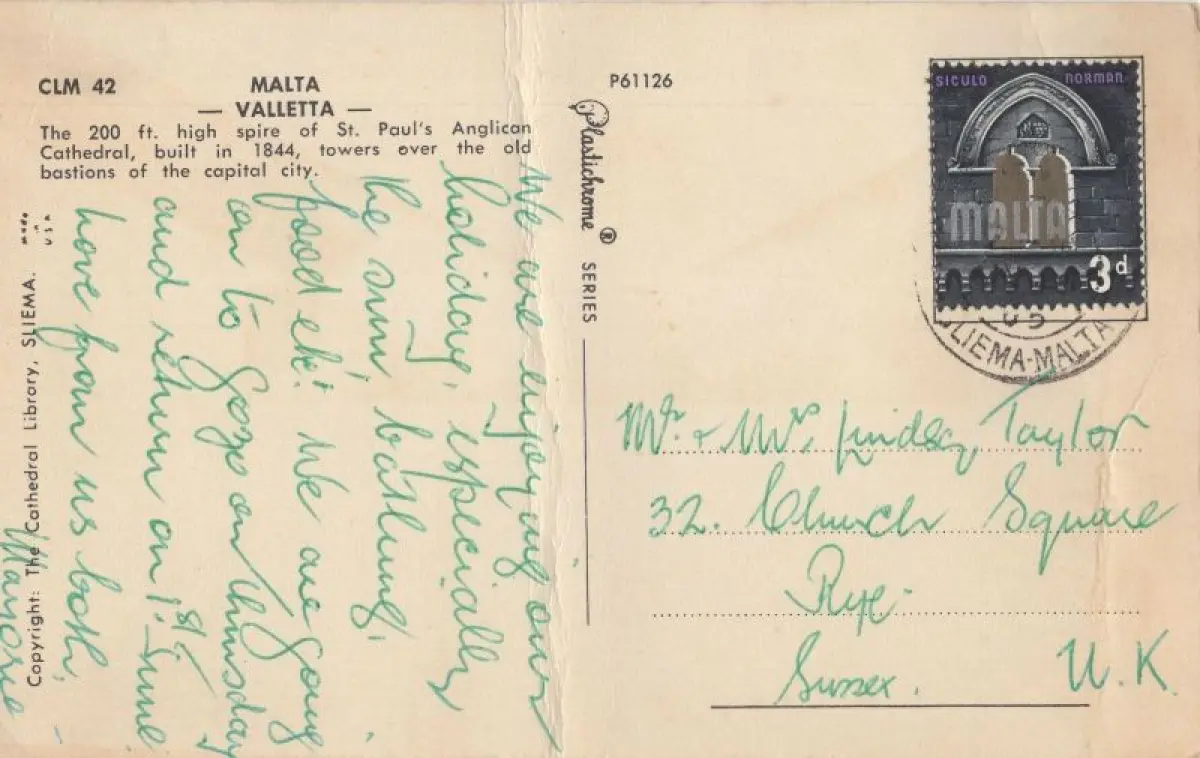 CLM 42
MALTA
— VALLETTA —
The 200 ft. high spire of St. Paul's Anglican
Cathedral, built in 1844, towers over the old
bastions of the capital city.
We are enjoying our
holiday, especially
the sun, bathing,
food etc! We are going
on to Gozo on Thursday
and return on 1st June
Love from us both,
Marjorie
Copyright: The Cathedral Library, SLIEMA.
MADE
U.S.A
P61126
Plastichrome ® SERIES
SICULO NORMAN
MALTA
3d
SLIEMA-MALTA
Mr. & Mrs. Lindsay Taylor
32. Church Square
Rye.
Sussex. U.K.